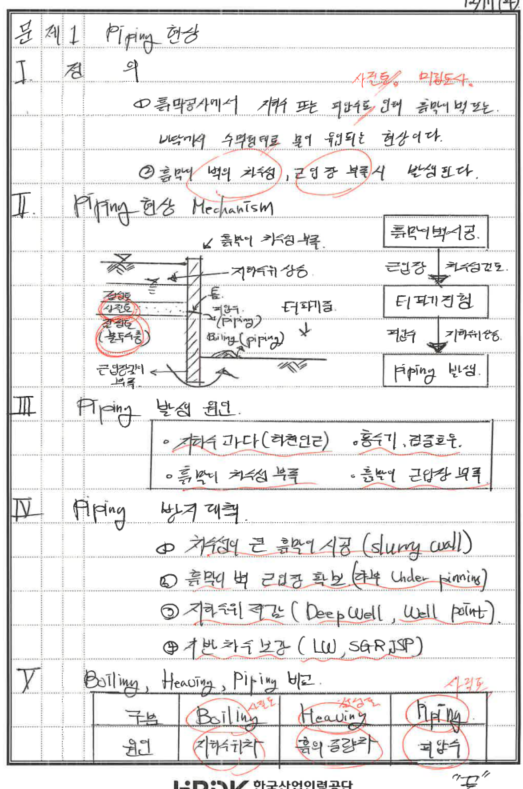 문제1 Piping 현상
I. 정 의
사질토. 미립토사.
① 흙막공사에서 지하수 또는 피압수로 인해 흙막이 벽 또는
바닥까지 수맥형태로 물이 유입되는 현상이다.
② 흙막이 벽의 차수성, 근입장 부족시 발생된다.
II. Piping 현상 Mechanism
흙막이 차수성 부족.
지하수위 상승.
점성토
사질토
점성토
(불투수층)
피압수
(piping)
Boiling (piping)
터파기중
근입장깊이
부족
흙막이벽시공.
근입장 차수성검토.
터파기진행
피압수 지하수위상승.
Piping 발생.
III Piping 발생 원인.
• 지하수 과다(하천인근) • 홍수기, 집중호우.
• 흙막이 차수성 부족 • 흙막이 근입장 부족
IV Piping 방지 대책.
① 차수성이 큰 흙막이 시공 (slurry wall)
② 흙막이 벽 근입장 확보 (하부 Under pinning)
③ 지하수위 저감 (Deep well, Well point).
④ 지반 차수 보강 (LW, SGR, JSP)
V Boiling, Heaving, Piping 비교.
구분 Boiling 사질토 Heaving 점성토 Piping 사질토
원인 지하수위차 흙의 중량차 피압수
"끝"
HRDK 한국산업인력공단